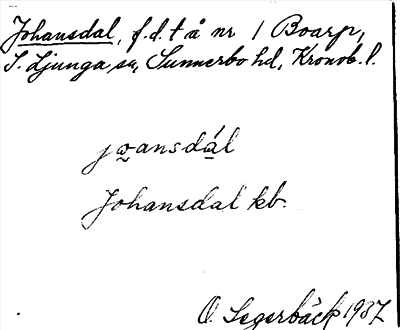 Johansdal, f.d. t å nr 1 Boarp,
S. Ljunga sn, Sunnerbo hd, Kronob. l.
jo̰ansdál
Johansdal kb.
O. Segerbäck 1937